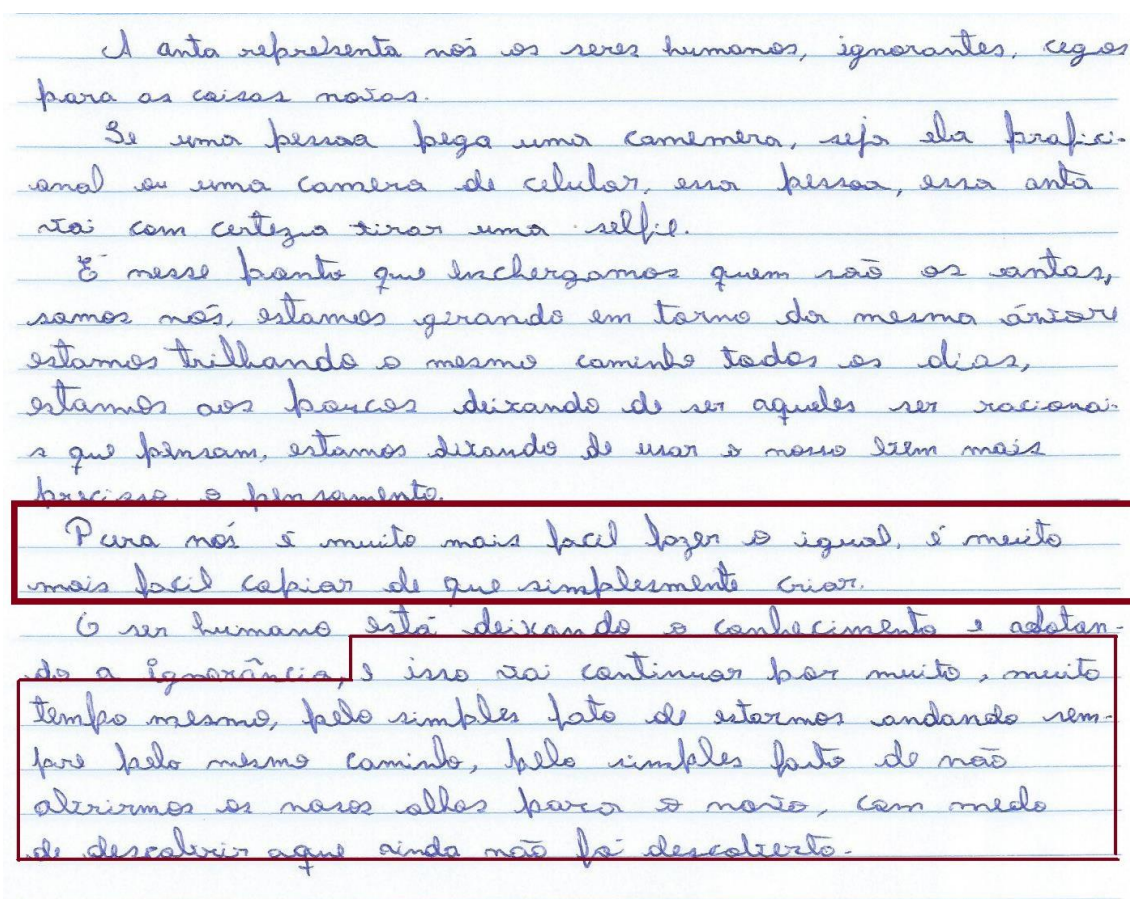 A anta representa nós os seres humanos, ignorantes, cegos
para as coisas novas.
Se uma pessoa pega uma camemera, seja ela profici-
onal ou uma camera de celular, essa pessoa, essa anta
vai com certeza tirar uma selfie.
É nesse ponto que enchergamos quem são as antas,
somos nós, estamos girando em torno da mesma árvore
estamos trilhando o mesmo caminho todos os dias,
estamos aos poucos deixando de ser aqueles ser racionai-
s que pensam, estamos dixando de usar o nosso bem mais
precisso, o pensamento.
Para nós é muito mais facil fazer o igual, é muito
mais facil copiar de que simplesmente criar.
O ser humano está deixando o conhecimento e adotan-
do a ignorância, e isso vai continuar por muito, muito
tempo mesmo, pelo simples fato de estarmos andando sem-
pre pelo mesmo caminho, pelo simples fato de não
abrirmos os nosos olhos para o novo, com medo
de descobrir aque ainda não foi descoberto.